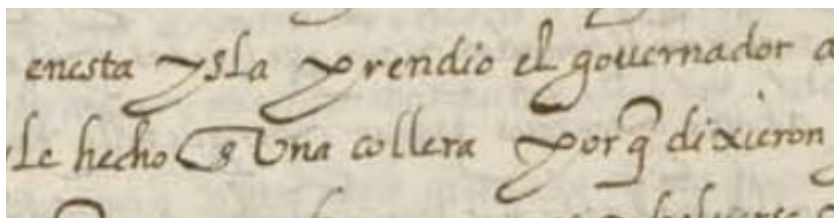 enesta ysla prendio el governador a
le hecho una collera porq̃ dixieron